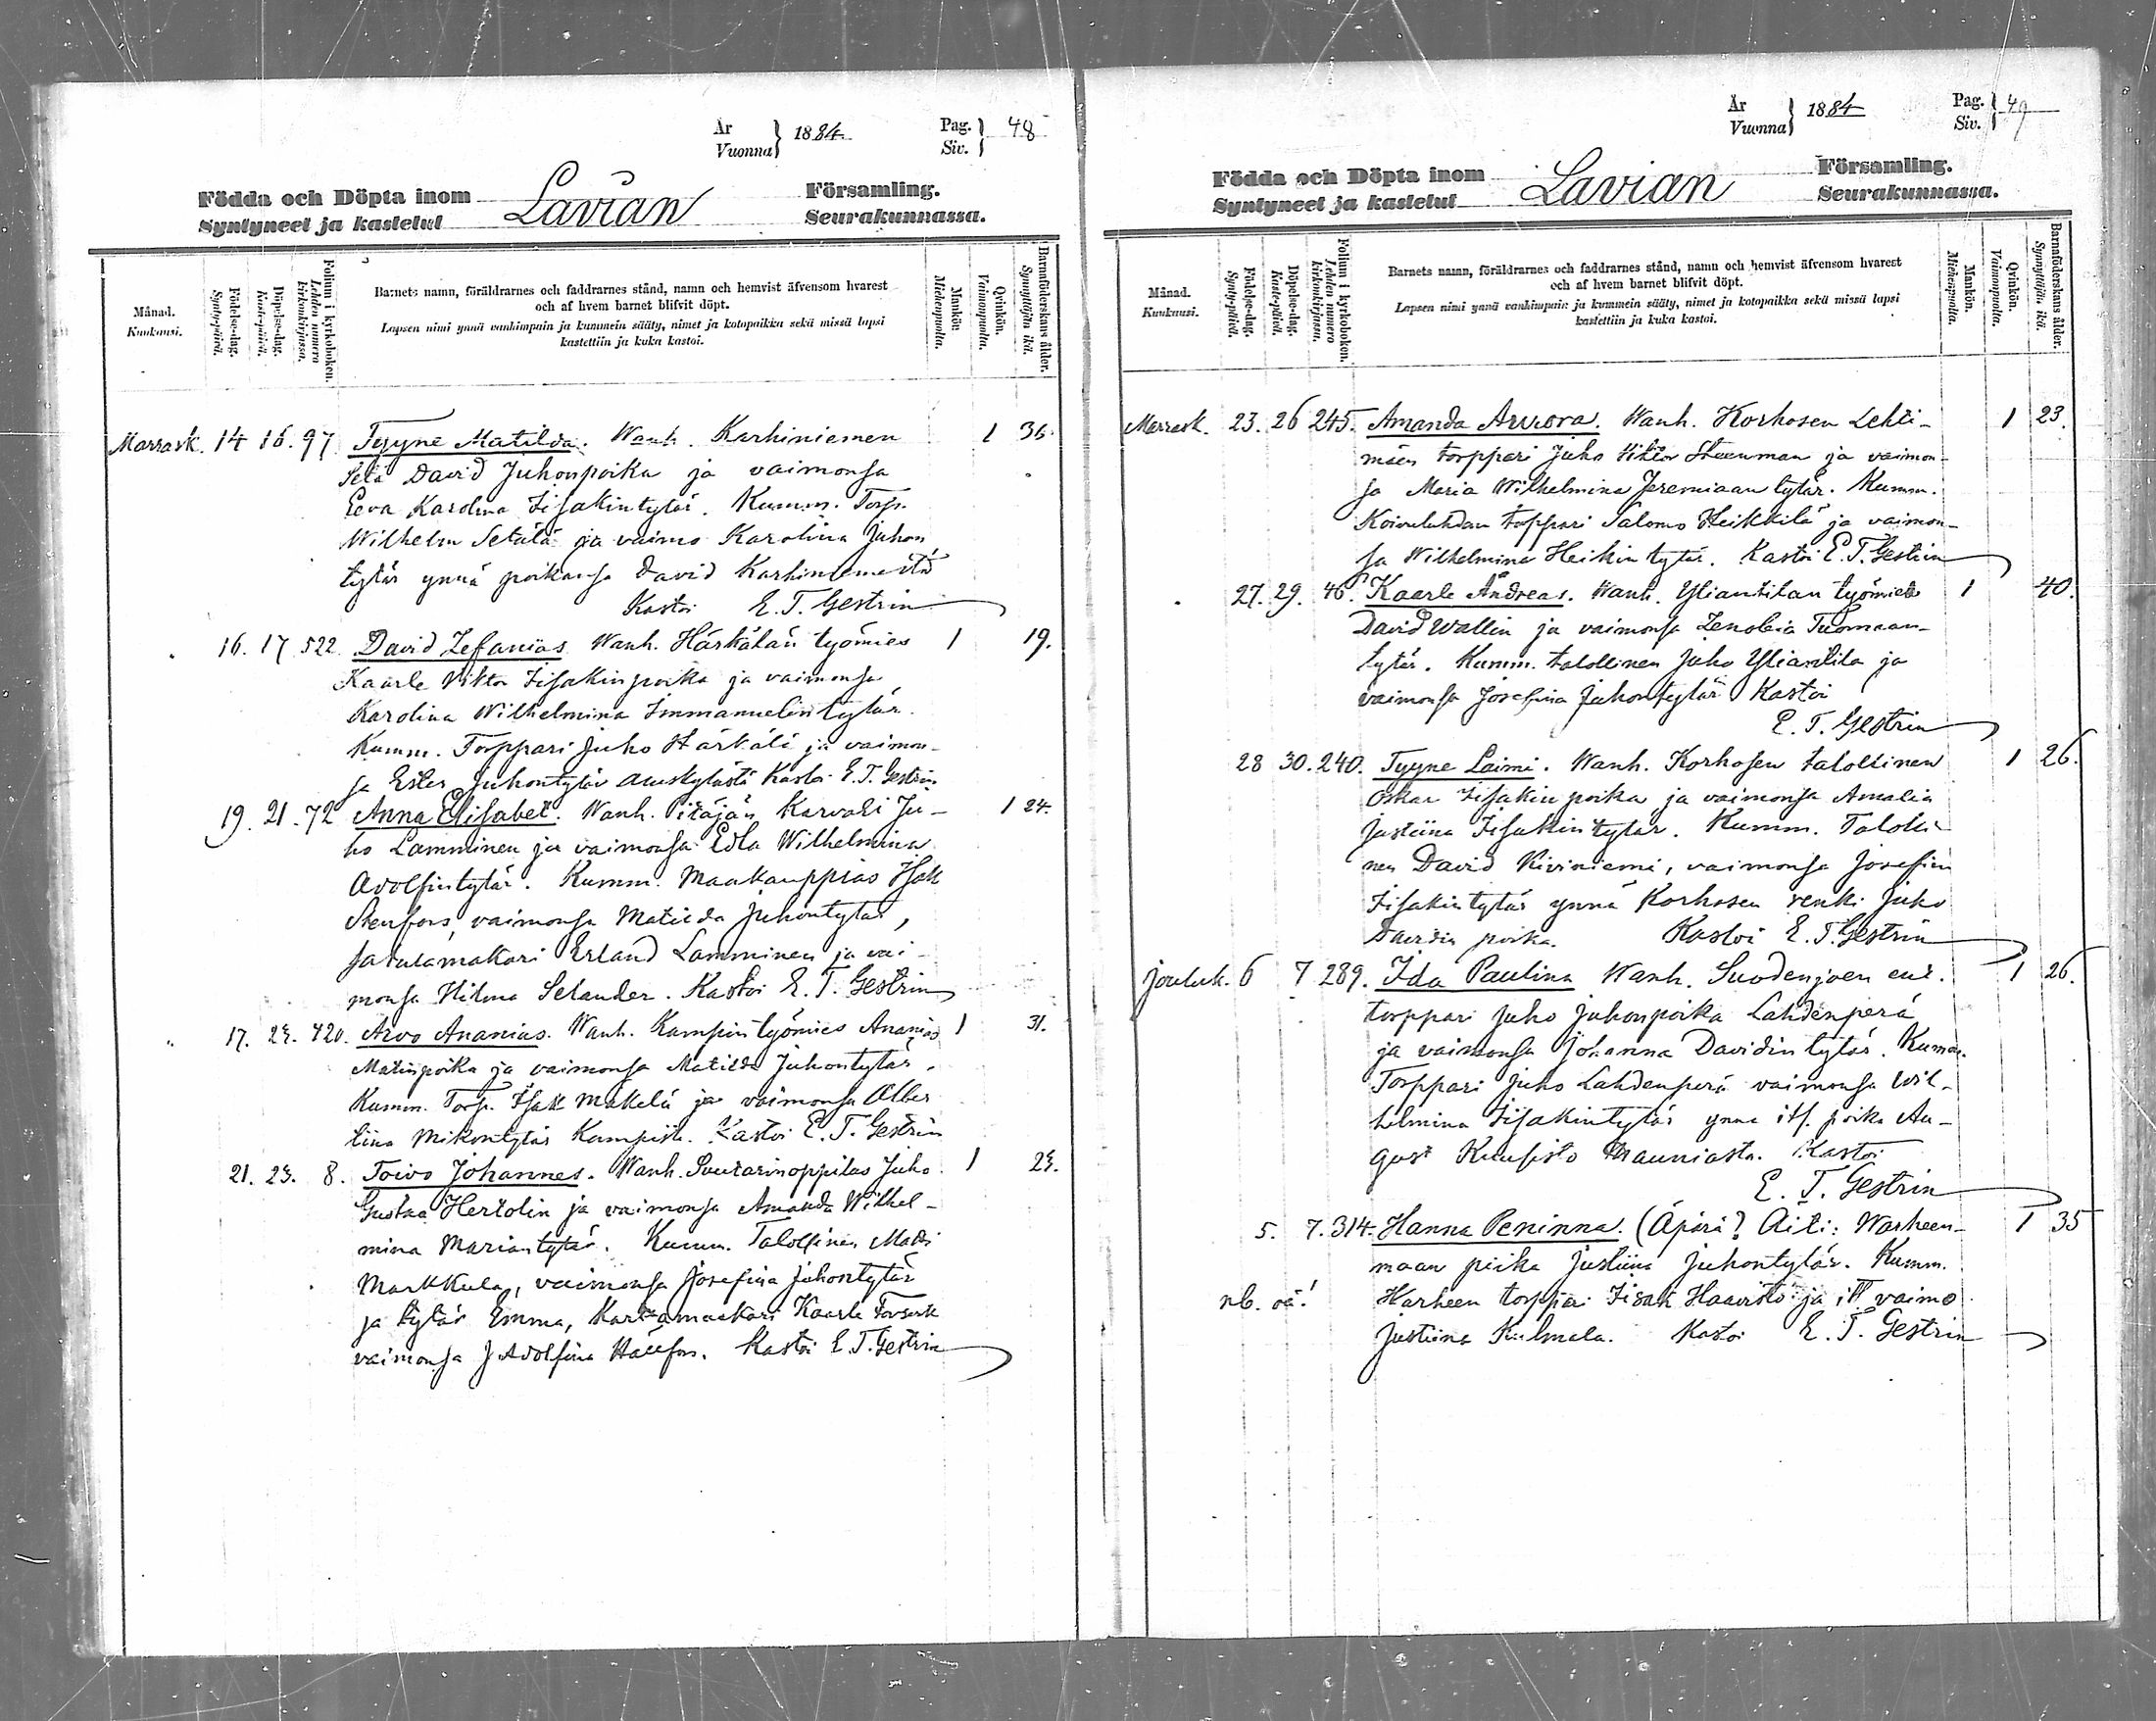 År
Vuonna } 1884. Pag.
Siv. } 48
Födda och Döpta inom Församling.
Lavian
Syntyneet ja kastetut Seurakunnassa.
Månad.
Kuukausi.
Födelse-dag.
Synty-päivä.
Döpelse-dag.
Kaste-päivä.
Folium i kyrkoboken.
Lehden numero kirkonkirjassa.
Barnets namn, föräldrarnes och faddrarnes stånd, namn och hemvist äfvensom hvarest
och af hvem barnet blifvit döpt.
Lapsen nimi ynnä vanhimpain ja kummein sääty, nimet ja kotopaikka sekä missä lapsi
kastettiin ja kuka kastoi.
Mankön.
Miehenpuolia.
Qvinkön.
Vaimonpuolia.
Barnaföderskans ålder.
Synnyttäjän ikä.
Marrask. 14 16. 97 Tyyne Matilda. Wanh. Karhiniemen 1 36.
David Juhonpoika ja vaimonsa
Eeva Karolina Iisakintytär. Kumm. Torp.
Wilhelm Setälä ja vaimo Karolina Juhon
tytär ynnä poikansa David Karhiniemestä
Kastoi E. T. Gestrin
16. 17 522 David Zefanias. Wanh. Härkälän työmies 1 19.
Kaarle Viktor Iisakinpoika ja vaimonsa
Karolina Wilhelmina Immanuelintytär.
Kumm. Torppari Juho Härkälä ja vaimon-
sa Ester Juhontytär Kastoi E. T. Gestrin
19. 21. 72 Anna Elisabet. Wanh. itäjän Karvari Ju- 1 24.
ho Lamminen ja vaimonsa Edla Wilhelmina
Adolfintytär. Kumm. Maakauppias Isak
Stenfors, vaimonsa Matilda Juhontytär,
satulamakari Erland Lamminen ja vai-
monsa Hilma Selander. Kastoi E. T. Gestrin
17. 23. 420. Arvo Ananias. Wanh. Kampin työmies Ananias 1 31.
Matinpoika ja vaimonsa Matilda Juhontytär.
Kumm. Torp. Isak Mäkelä ja vaimonsa Alber
tiina Mikontytär Kampista. Kastoi E. T. Gestrin
21. 23. 8. Toivo Johannes. Wanh. Suutarinoppilas Juho 1 23.
Gustaa Hertolin ja vaimonsa Amanda Wilhel-
mina Mariantytär. Kumm. Talollinen Matti
Markkula, vaimonsa Josefina Juhontytär
ja tytär Emma, Kaarle
vaimonsa J Adolfina Hällfors. Kastoi E. T. Gestrin
År
Vuonna } 1884 Pag.
Siv. } 49
Födda och Döpta inom Församling.
Lavian
Syntyneet ja kastetut Seurakunnassa.
Månad.
Kuukausi.
Födelse-dag.
Synty-päivä.
Döpelse-dag.
Kaste-päivä.
Folium i kyrkoboken.
Lehden numero kirkonkirjassa.
Barnets namn, föräldrarnes och faddrarnes stånd, namn och hemvist äfvensom hvarest
och af hvem barnet blifvit döpt.
Lapsen nimi ynnä vanhimpain ja kummein sääty, nimet ja kotopaikka sekä missä lapsi
kastettiin ja kuka kastoi.
Mankön.
Miehenpuolia.
Qvinkön.
Vaimonpuolia.
Barnaföderskans ålder.
Synnyttäjän ikä.
Marrask. 23. 26 245. Amanda Aurora. Wanh. Korhosen Lehti- 1 23.
mäen torppari Juho Viktor Steenman ja vaimon-
sa Maria Wilhelmina Jeremiaan tytär. Kumm.
Koivuluhdan torppari Salomo Heikkilä ja vaimon-
sa Wilhelmina Heikin tytär. Kastoi E. T. Gestrin
27. 29. 46. Kaarle Andreas. Wanh. Yliantilan työmies 1 40.
David Wallin ja vaimonsa Zenobia Tuomaan-
tytär. Kumm. talollinen Juho Yliantila ja
vaimonsa Josefina Juhontytär Kastoi
E. T. Gestrin
28 30. 240. Tyyne Laimi. Wanh. Korhosen talollinen 1 26.
Oskar Iisakin poika ja vaimonsa Amalia
Justiina Iisakin tytär. Kumm. Talolli-
nen David Kiviniemi, vaimonsa Josefina
Iisakintytär ynnä Korhosen renki Juho
Davidin poika. Kastoi E. T. Gestrin
Jouluk. 6 7 289. Ida Paulina Wanh. Suodenjoen ent. 1 26.
torppari Juho Juhonpoika Lahdenperä
ja vaimonsa Johanna Davidin tytär. Kumm.
Torppari Juho Lahdenperä vaimonsa Wil-
helmina Iisakintytär ynnä its. poika Au-
gust Kuusisto Mauniasta. Kastoi
E. T. Gestrin
5. 7. 314. Hanna Peninna. (Äpärä? Äiti: Warheen- 1 35
maan piika Justiina Juhontytär. Kumm.
nb. oä! Harheen torppari Iisak Haavisto ja itt vaimo
Justiina Kulmala. Kastoi E. T. Gestrin